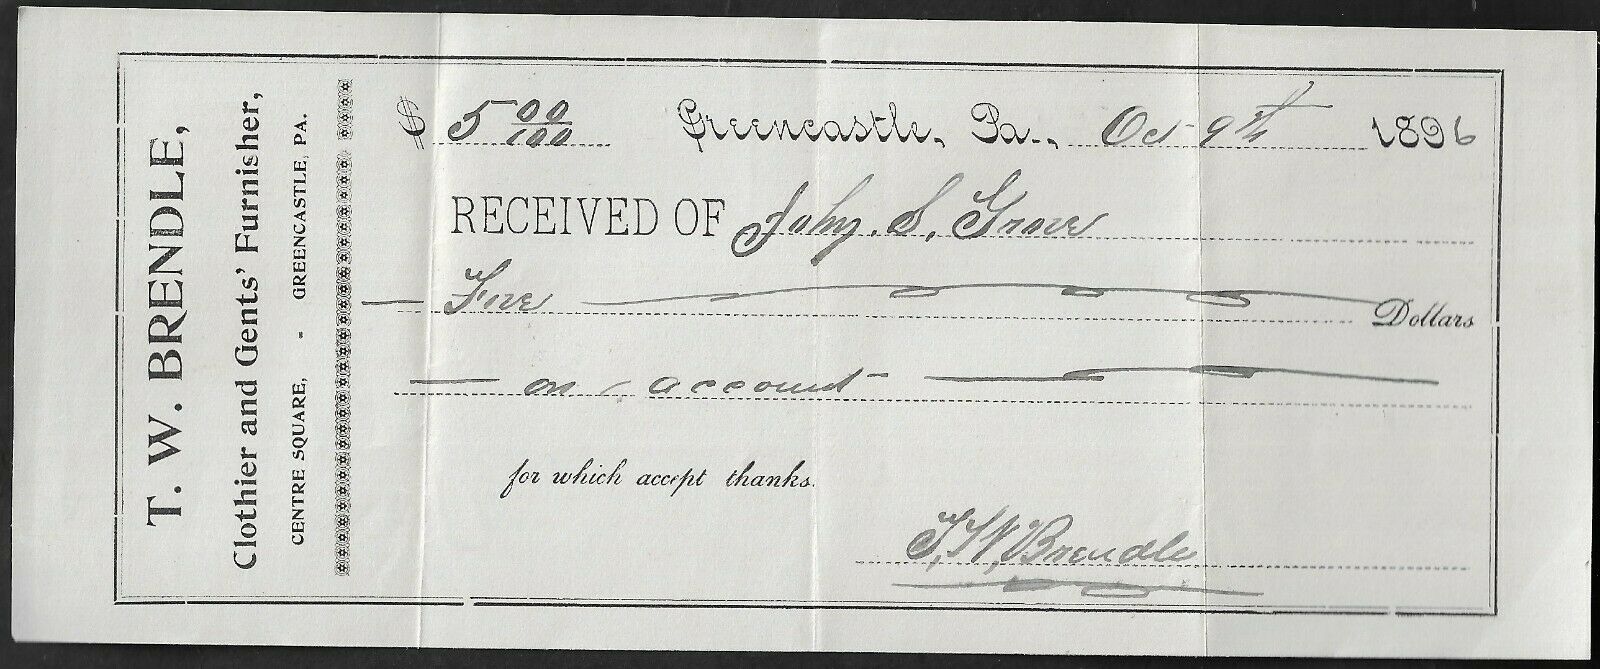 T. W. BRENDLE,
Clothier and Gents' Furnisher,
CENTRE SQUARE, - GREENCASTLE, PA.
$ 5 00/100 Greencastle, Pa., Oct 9th 1896
RECEIVED OF John. S. Grove
Five Dollars
on account
for which accept thanks.
T. W. Brendle